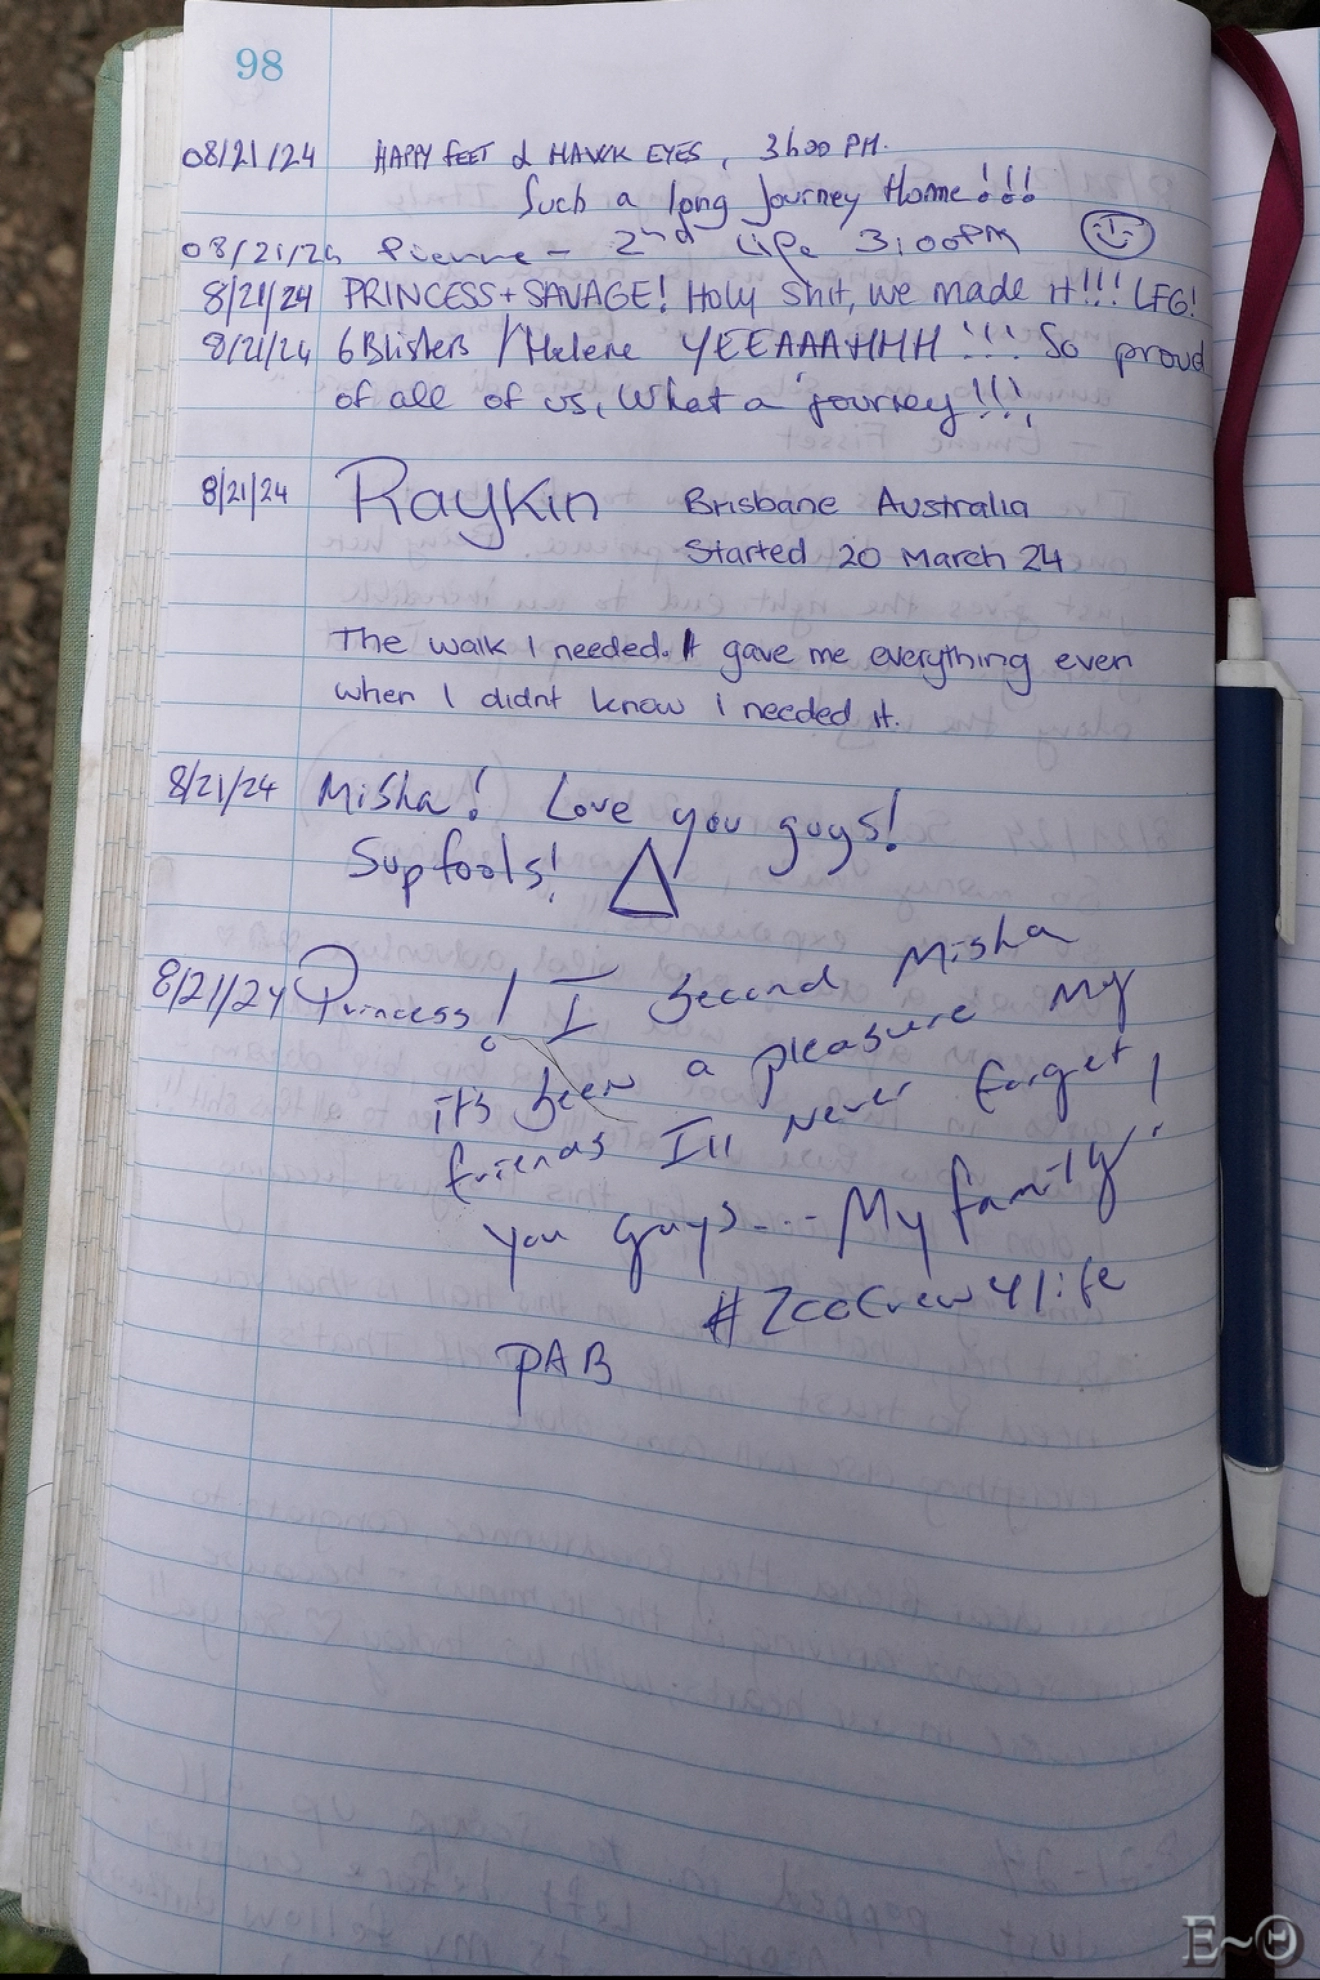 98
08/21/24 HAPPY FEET & HAWK EYES, 3h00 PM.
Such a long Journey Home!!!
08/21/24 Pierre - 2nd Life 3:00PM
8/21/24 PRINCESS + SAVAGE! Holy Shit, we made it!!! LFG!
8/21/24 6Blisters / Helene YEEAAAHHH!!! So proud
of all of us, What a journey!!!
8/21/24 RayKin Brisbane Australia
Started 20 March 24
The walk I needed. It gave me everything even
when I didnt know I needed it.
8/21/24 Misha! Love you guys!
Sup fools!
8/21/24 Princess! I Second Misha
its been a pleasure My
friends I'll Never forget
you guys... My family!
#ZooCrew4life
PAB
E~Θ